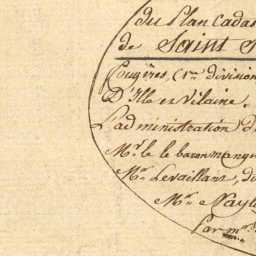 du Plan Cadas
de Saint
Fougères, (1re division
D'Ille et Vilaine,
L'administration D
Mr. le baron
Mr. Levaillant, di
Mr. Nayl
Par mr.